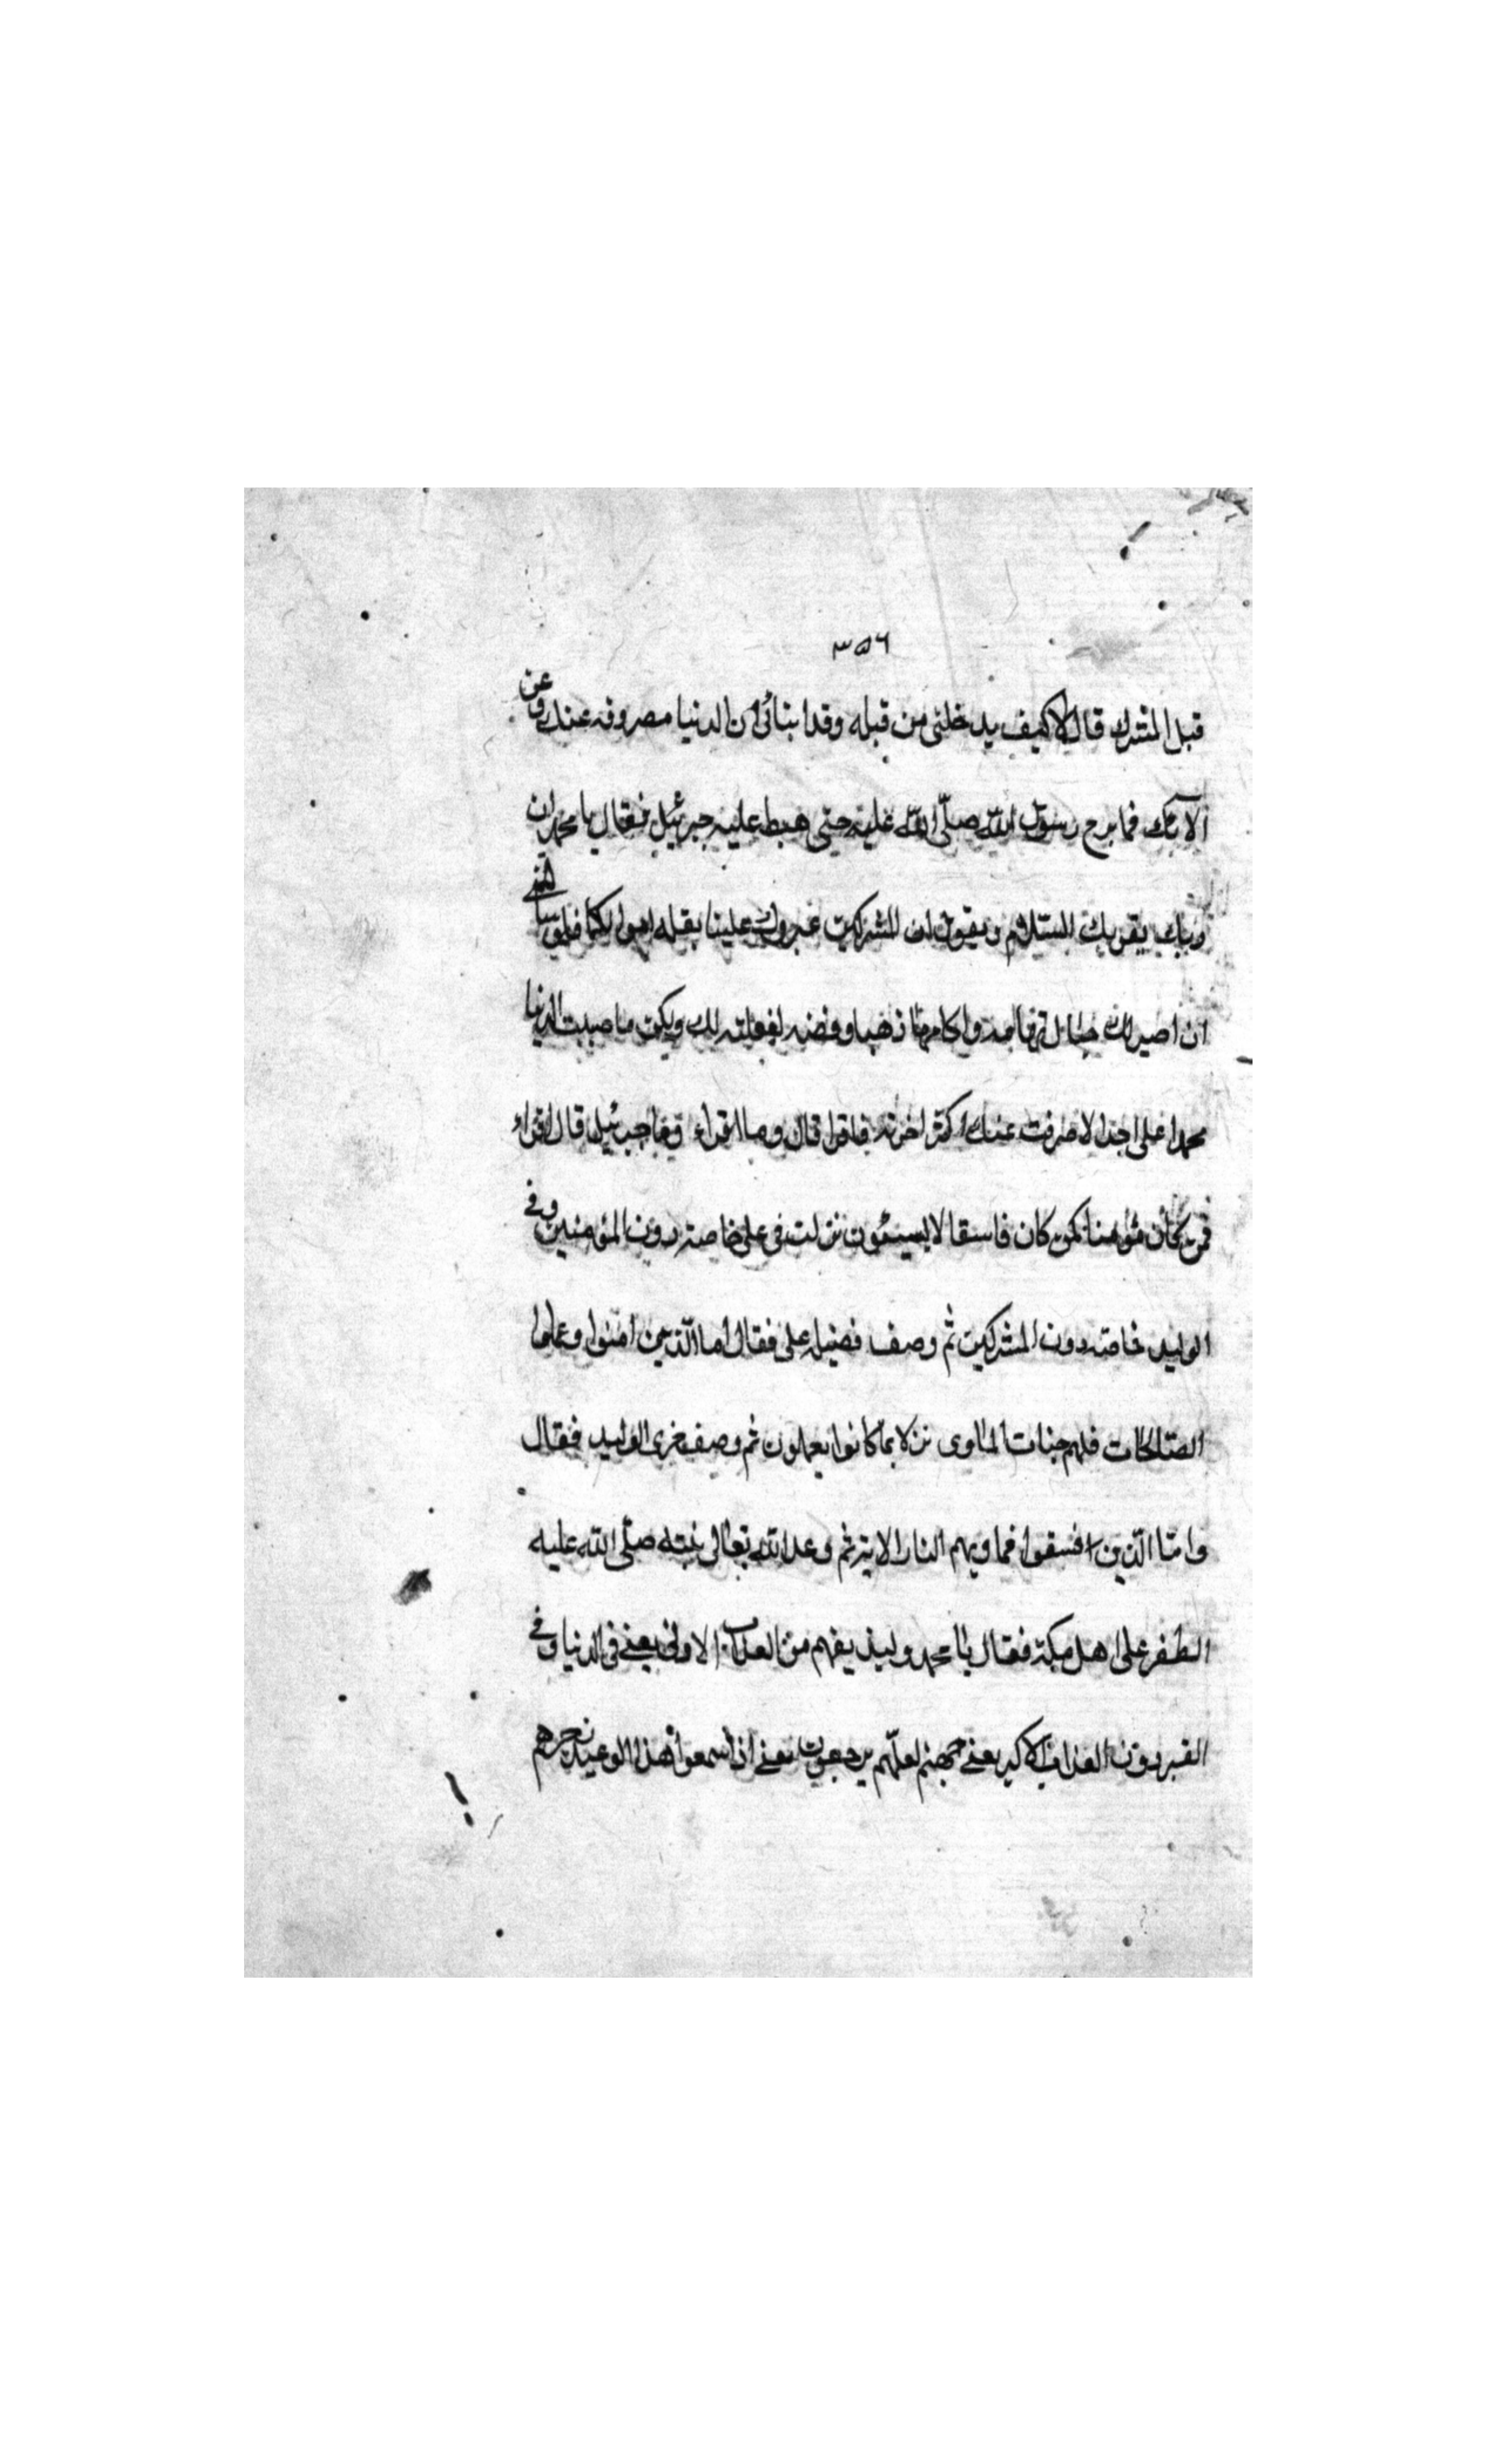 ٣٥٦
قبل المشرك قال لا كيف يدخلنى من قبله وقد ابنائى ان الدنيا مصروفه عنك وعن
الا بك فما برح رسول اللّه صلّى اللّه عليه حتى هبط عليه جبرئيل فقال يا محمد ان
ربك يقريك السّلام ويقول ان المشركين عيروك علينا بقله اموالكما فلو سالتنى
ان اصير لك جبال تهامه واكامها ذهبا وفضه لفعلته لك ولكن ما صببت الدنيا
محمدا على احد الا صرفت عنك اكثر اخرته فاقرا قال وما اقراء يا جبرئيل قال اقراء
فمن كان مؤمنا كمن كان فاسقا لا يستوون نزلت فى على خاصته دون المؤمنين وفى
الوليد خاصته دون المشركين ثم وصف فضيله على فقال اما الّذين امنوا وعملوا
الصّالحات فلهم جنات الماوى نزلا بما كانوا يعملون ثم وصف خزى الوليد فقال
وامّا الّذين افسقوا فماويهم النار الايته ثم وعد اللّه تعالى نبيّه صلّى اللّه عليه
الظفر على اهل مكة فقال يا محمد وليذيقهم من العذاب الاولى يعنى فى الدنيا وفى
القبر دون العذاب الاكبر يعنى جهنم لعلّهم يرجعون يعنى اذا سمعوا هذا الوعيد